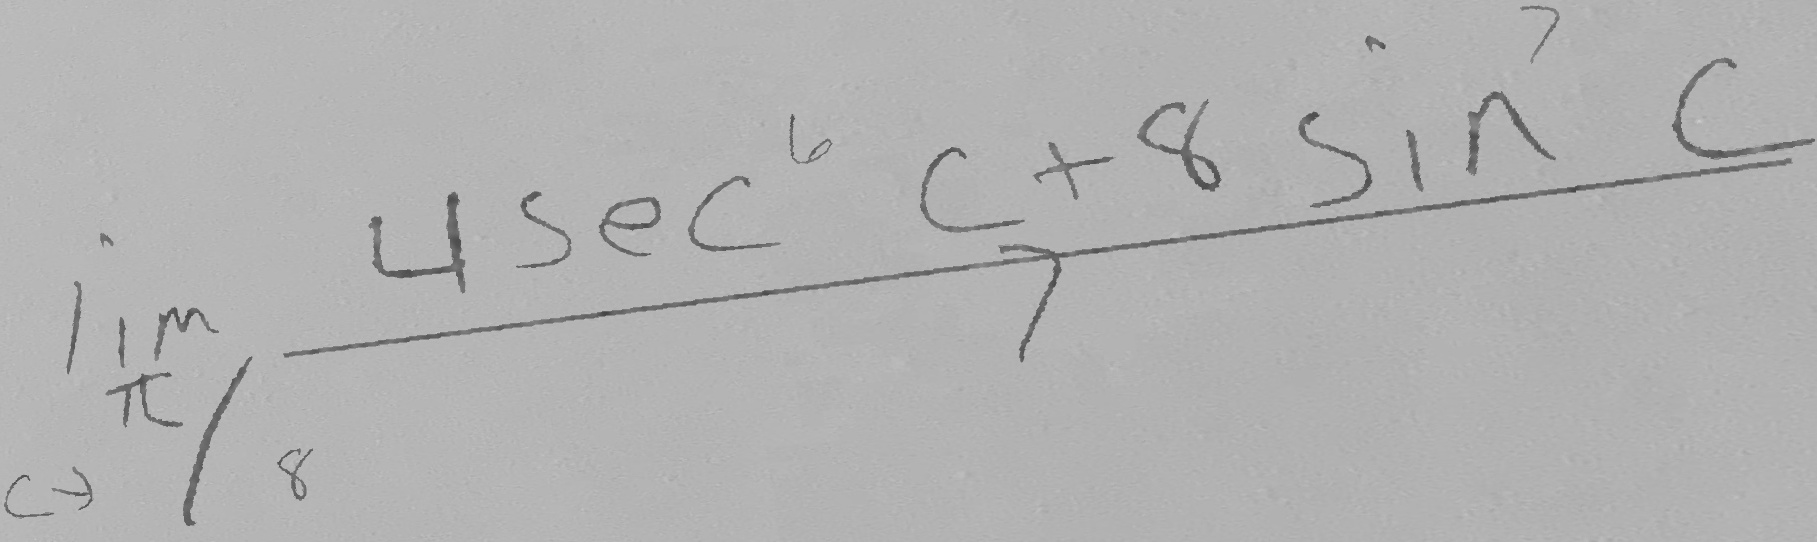 lim_{c→π/8} \frac{4sec^6 c+8sin^7 c}{7}